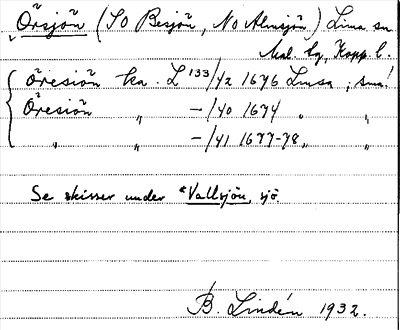 Örsjön (SO Besjön, NO Almsjön) Lima sn
Mal. tg, Kopp. l.
Öresiön ka. L 133/42 1676 Lmsa ; sma!
Öresiön " —/40 1674 " "
" " —/41 1677-78 " "
Se skisser under *Vallsjön, sjö.
B. Lindén 1932.